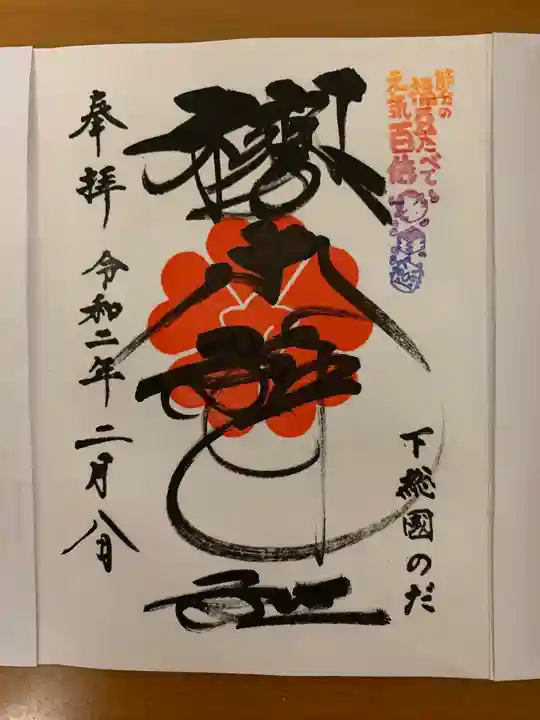 節分の
福豆たべて
元気百倍
下総國のだ
櫻木神社
奉拝 令和二年二月八日